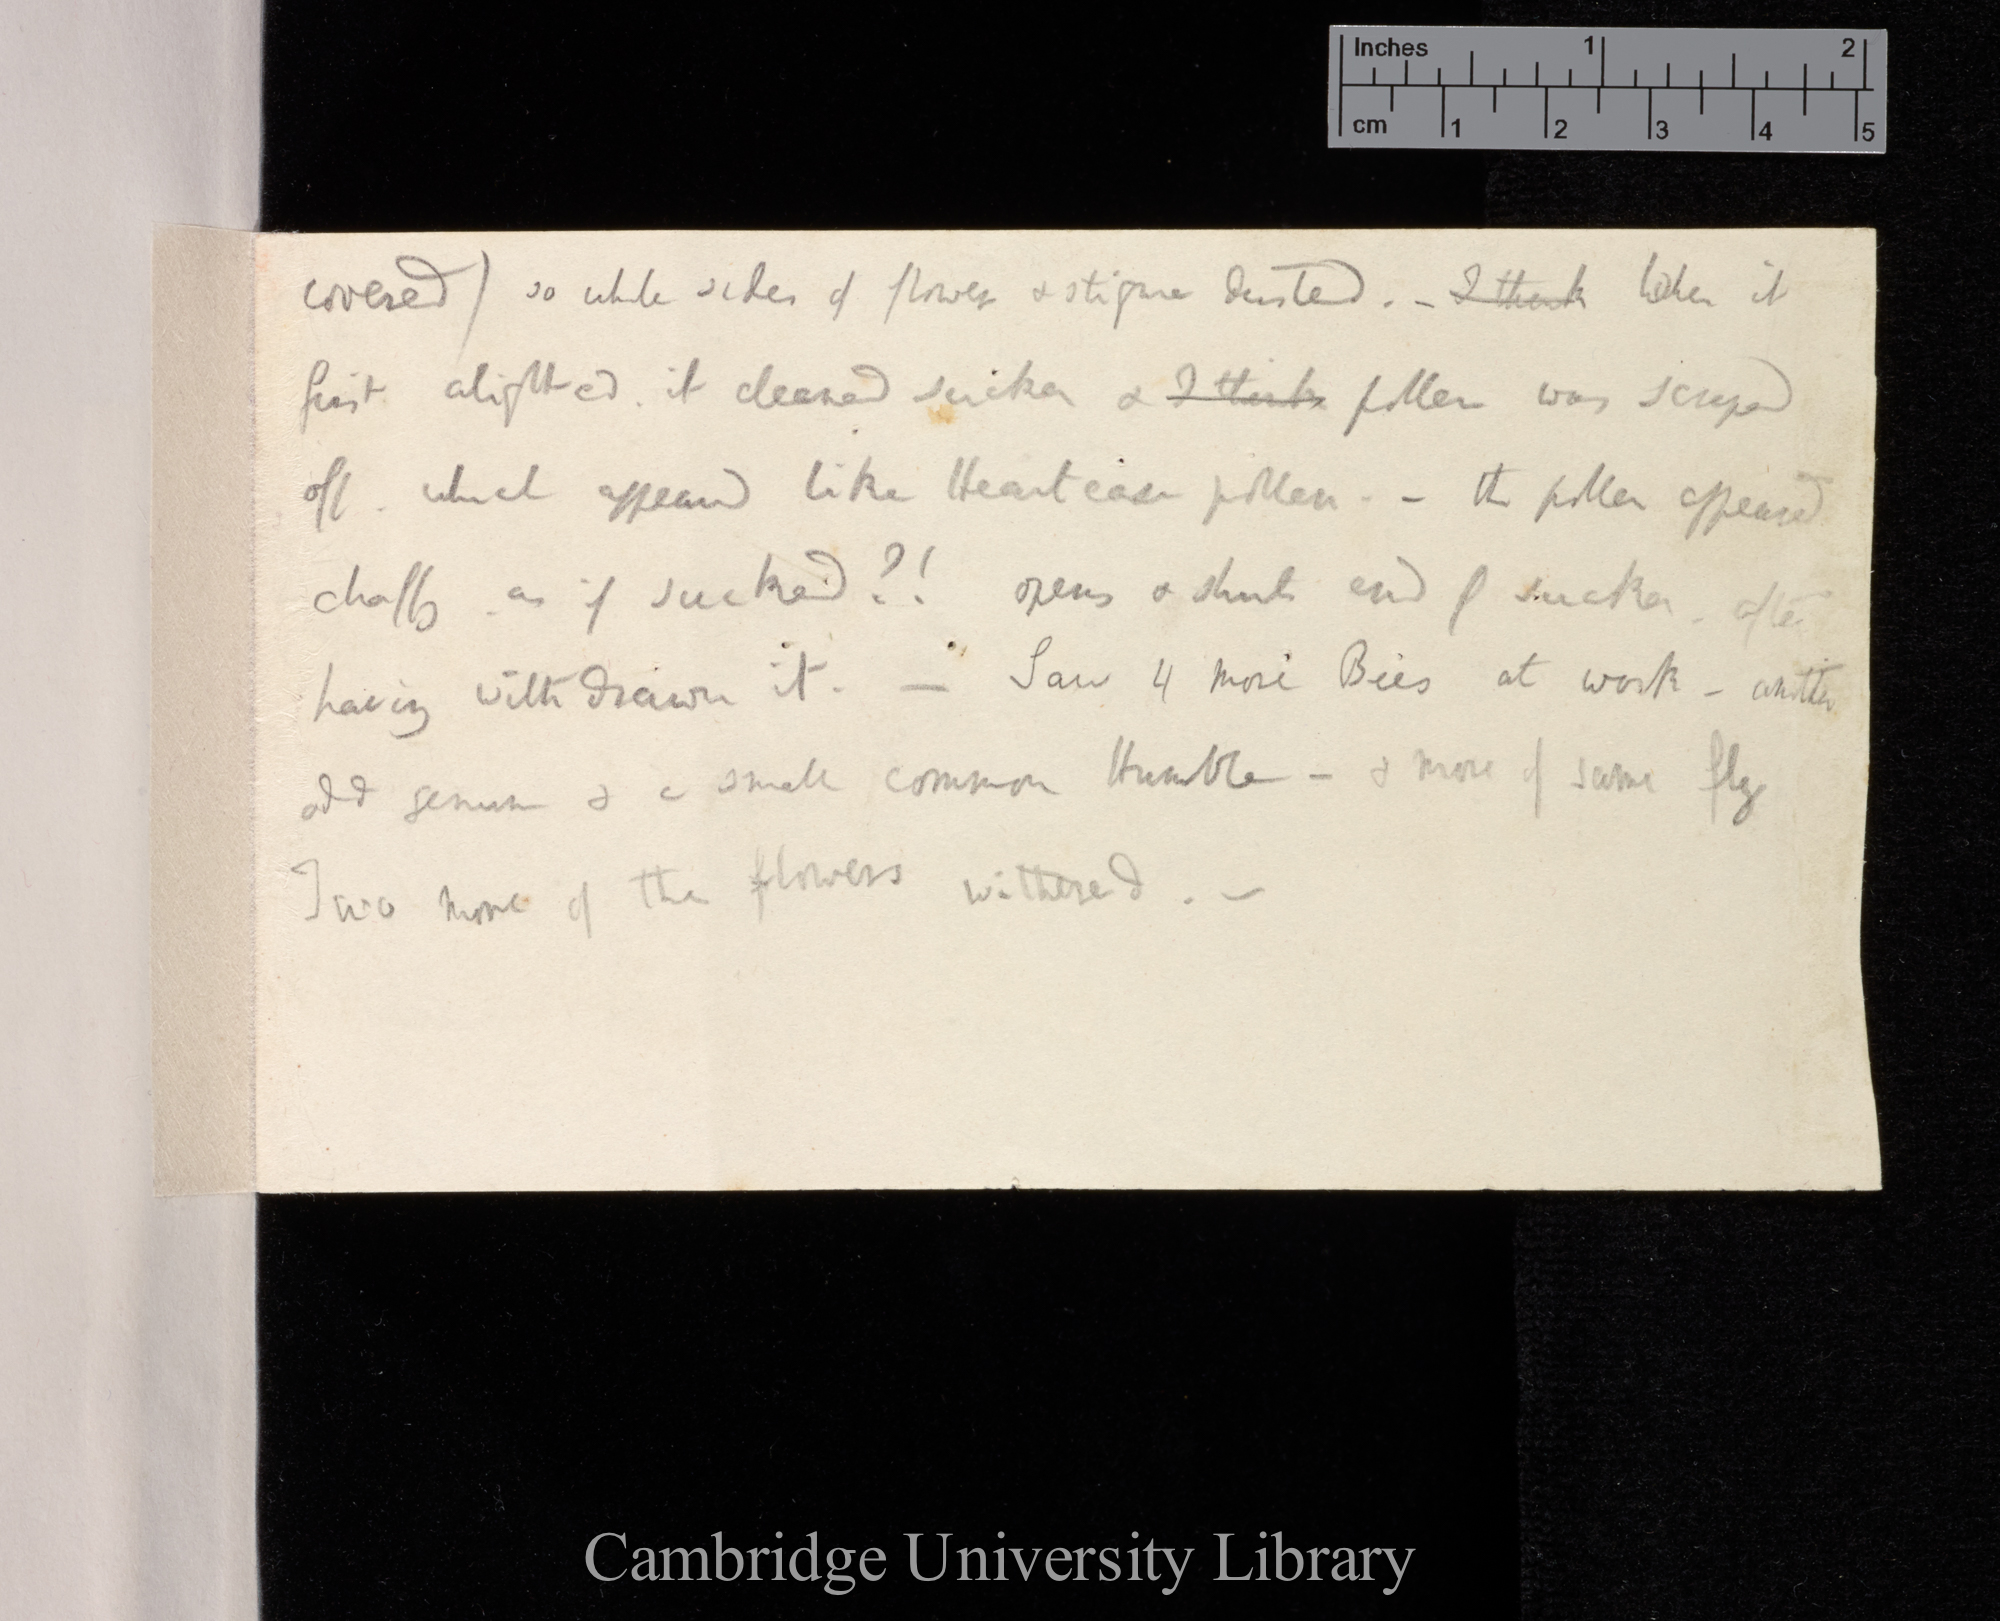 Inches 1 2
cm 1 2 3 4 5
covered) so while sides of flower & stigma dusted. – I think When it
first alighted. it cleaned sucker & I think pollen was scraped
off. which appeared like Heartease pollen. – the pollen appeared
chaffy as if sucked?! opens & shuts end of sucker. after
having withdrawn it. — Saw 4 more Bees at work – another
odd genus & a small common Humble – & more of same fly
Two more of the flowers withered. –
Cambridge University Library